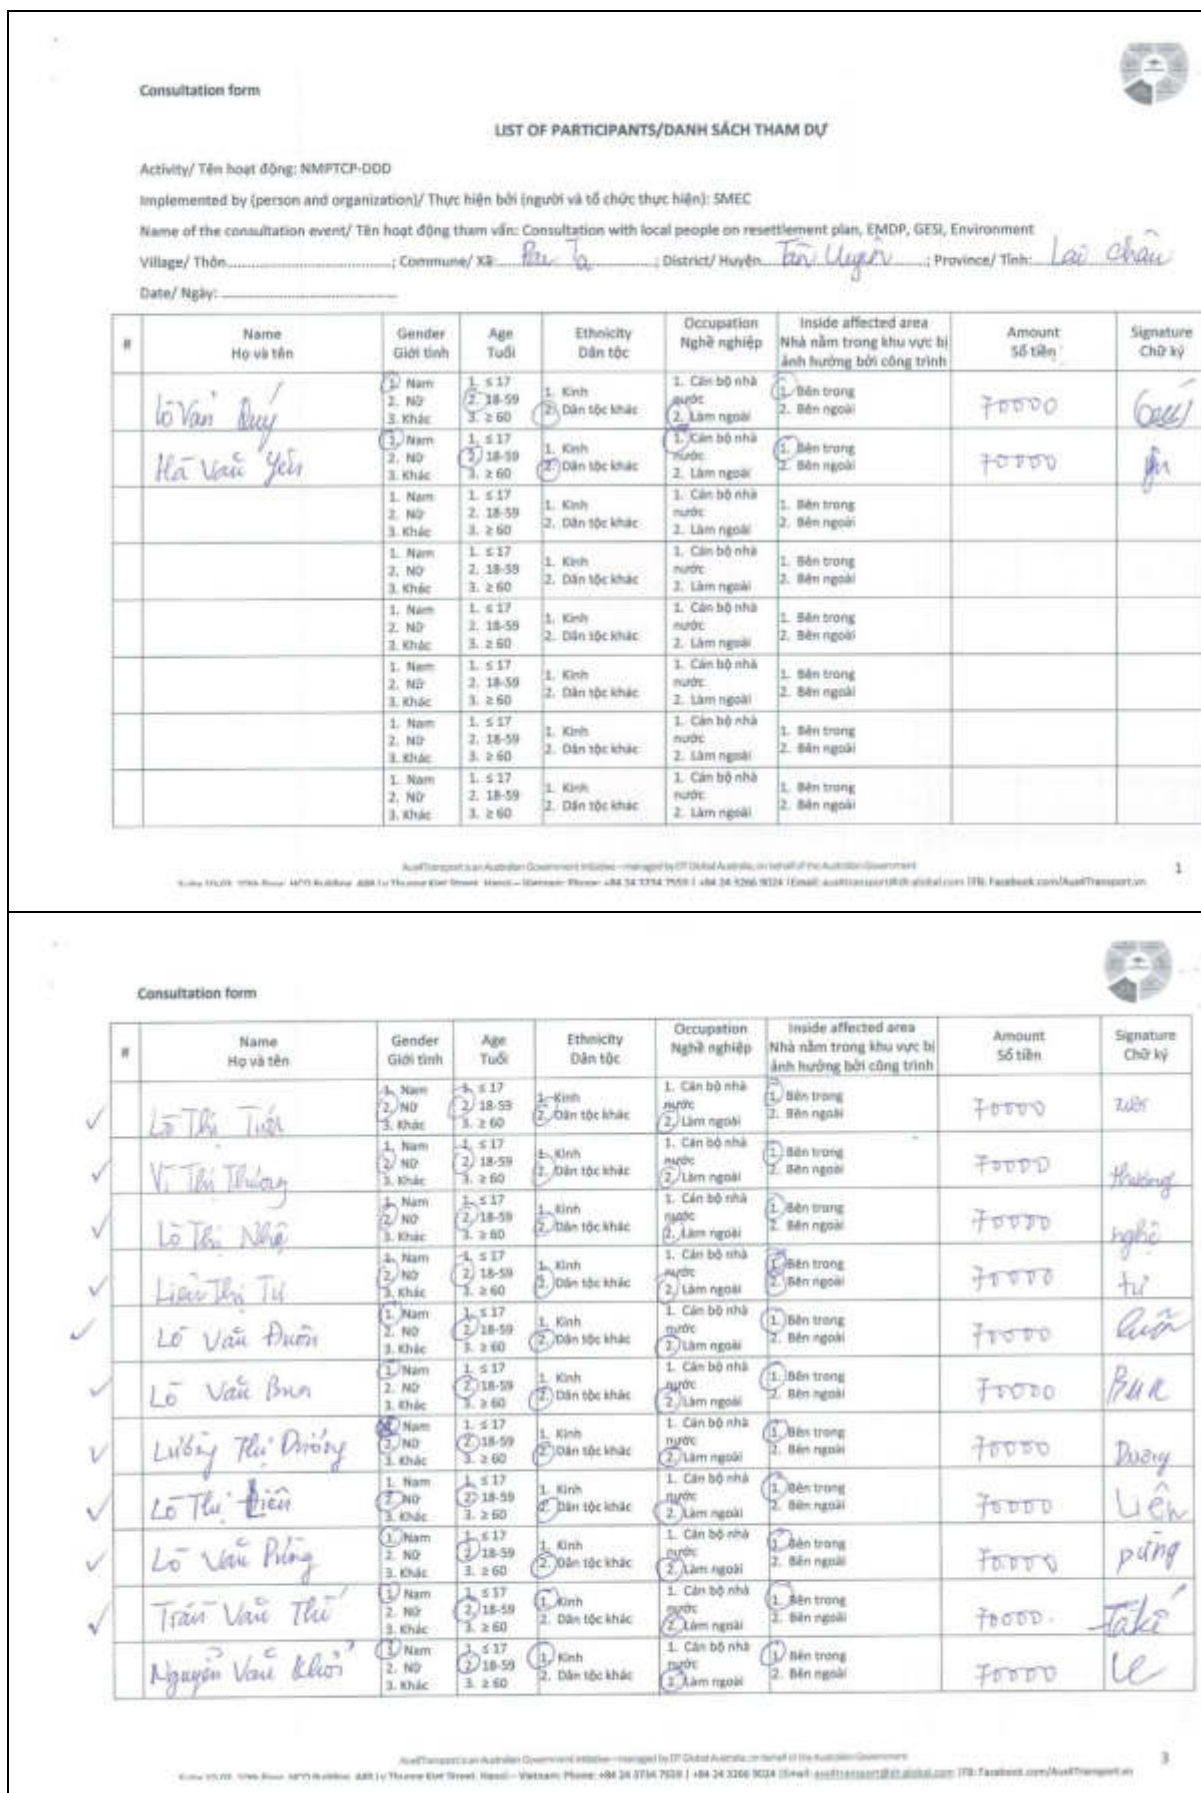 Consultation form
LIST OF PARTICIPANTS/DANH SÁCH THAM DỰ
Activity/ Tên hoạt động: NMPTCP-DDD
Implemented by (person and organization)/ Thực hiện bởi (người và tổ chức thực hiện): SMEC
Name of the consultation event/ Tên hoạt động tham vấn: Consultation with local people on resettlement plan, EMDP, GESI, Environment
Village/ Thôn ; Commune/ Xã: Ta ; District/ Huyện Tân Uyên ; Province/ Tỉnh: Lai Châu
Date/ Ngày:
# Name Họ và tên Gender Giới tính Age Tuổi Ethnicity Dân tộc Occupation Nghề nghiệp Inside affected area Nhà nằm trong khu vực bị ảnh hưởng bởi công trình Amount Số tiền Signature Chữ ký
Lò Văn Quý 1. Nam 2. Nữ 3. Khác 1. ≤ 17 2. 18-59 3. ≥ 60 1. Kinh 2. Dân tộc khác 1. Cán bộ nhà nước 2. Làm ngoài 1. Bên trong 2. Bên ngoài 70000
Hà Văn Yên 1. Nam 2. Nữ 3. Khác 1. ≤ 17 2. 18-59 3. ≥ 60 1. Kinh 2. Dân tộc khác 1. Cán bộ nhà nước 2. Làm ngoài 1. Bên trong 2. Bên ngoài 70000
1. Nam 2. Nữ 3. Khác 1. ≤ 17 2. 18-59 3. ≥ 60 1. Kinh 2. Dân tộc khác 1. Cán bộ nhà nước 2. Làm ngoài 1. Bên trong 2. Bên ngoài
1. Nam 2. Nữ 3. Khác 1. ≤ 17 2. 18-59 3. ≥ 60 1. Kinh 2. Dân tộc khác 1. Cán bộ nhà nước 2. Làm ngoài 1. Bên trong 2. Bên ngoài
1. Nam 2. Nữ 3. Khác 1. ≤ 17 2. 18-59 3. ≥ 60 1. Kinh 2. Dân tộc khác 1. Cán bộ nhà nước 2. Làm ngoài 1. Bên trong 2. Bên ngoài
1. Nam 2. Nữ 3. Khác 1. ≤ 17 2. 18-59 3. ≥ 60 1. Kinh 2. Dân tộc khác 1. Cán bộ nhà nước 2. Làm ngoài 1. Bên trong 2. Bên ngoài
1. Nam 2. Nữ 3. Khác 1. ≤ 17 2. 18-59 3. ≥ 60 1. Kinh 2. Dân tộc khác 1. Cán bộ nhà nước 2. Làm ngoài 1. Bên trong 2. Bên ngoài
1. Nam 2. Nữ 3. Khác 1. ≤ 17 2. 18-59 3. ≥ 60 1. Kinh 2. Dân tộc khác 1. Cán bộ nhà nước 2. Làm ngoài 1. Bên trong 2. Bên ngoài
Aus4Transport is an Australian Government initiative – managed by DT Global Australia, on behalf of the Australian Government
1
Consultation form
# Name Họ và tên Gender Giới tính Age Tuổi Ethnicity Dân tộc Occupation Nghề nghiệp Inside affected area Nhà nằm trong khu vực bị ảnh hưởng bởi công trình Amount Số tiền Signature Chữ ký
Lò Thị 1. Nam 2. Nữ 3. Khác 1. ≤ 17 2. 18-59 3. ≥ 60 1. Kinh 2. Dân tộc khác 1. Cán bộ nhà nước 2. Làm ngoài 1. Bên trong 2. Bên ngoài 70000
Vì Thị Thương 1. Nam 2. Nữ 3. Khác 1. ≤ 17 2. 18-59 3. ≥ 60 1. Kinh 2. Dân tộc khác 1. Cán bộ nhà nước 2. Làm ngoài 1. Bên trong 2. Bên ngoài 70000 thương
Lò Thị Nhệ 1. Nam 2. Nữ 3. Khác 1. ≤ 17 2. 18-59 3. ≥ 60 1. Kinh 2. Dân tộc khác 1. Cán bộ nhà nước 2. Làm ngoài 1. Bên trong 2. Bên ngoài 70000 nghệ
Thị Tư 1. Nam 2. Nữ 3. Khác 1. ≤ 17 2. 18-59 3. ≥ 60 1. Kinh 2. Dân tộc khác 1. Cán bộ nhà nước 2. Làm ngoài 1. Bên trong 2. Bên ngoài 70000 tư
Lò Văn 1. Nam 2. Nữ 3. Khác 1. ≤ 17 2. 18-59 3. ≥ 60 1. Kinh 2. Dân tộc khác 1. Cán bộ nhà nước 2. Làm ngoài 1. Bên trong 2. Bên ngoài 70000
Lò Văn Bun 1. Nam 2. Nữ 3. Khác 1. ≤ 17 2. 18-59 3. ≥ 60 1. Kinh 2. Dân tộc khác 1. Cán bộ nhà nước 2. Làm ngoài 1. Bên trong 2. Bên ngoài 70000 Bun
Lường Thị Dương 1. Nam 2. Nữ 3. Khác 1. ≤ 17 2. 18-59 3. ≥ 60 1. Kinh 2. Dân tộc khác 1. Cán bộ nhà nước 2. Làm ngoài 1. Bên trong 2. Bên ngoài 70000 Dương
Lò Thị Liên 1. Nam 2. Nữ 3. Khác 1. ≤ 17 2. 18-59 3. ≥ 60 1. Kinh 2. Dân tộc khác 1. Cán bộ nhà nước 2. Làm ngoài 1. Bên trong 2. Bên ngoài 70000 Liên
Lò Văn Pủng 1. Nam 2. Nữ 3. Khác 1. ≤ 17 2. 18-59 3. ≥ 60 1. Kinh 2. Dân tộc khác 1. Cán bộ nhà nước 2. Làm ngoài 1. Bên trong 2. Bên ngoài 70000 pủng
Trần Văn Thế 1. Nam 2. Nữ 3. Khác 1. ≤ 17 2. 18-59 3. ≥ 60 1. Kinh 2. Dân tộc khác 1. Cán bộ nhà nước 2. Làm ngoài 1. Bên trong 2. Bên ngoài 70000
Nguyễn Văn 1. Nam 2. Nữ 3. Khác 1. ≤ 17 2. 18-59 3. ≥ 60 1. Kinh 2. Dân tộc khác 1. Cán bộ nhà nước 2. Làm ngoài 1. Bên trong 2. Bên ngoài 70000
Aus4Transport is an Australian Government initiative – managed by DT Global Australia, on behalf of the Australian Government
3